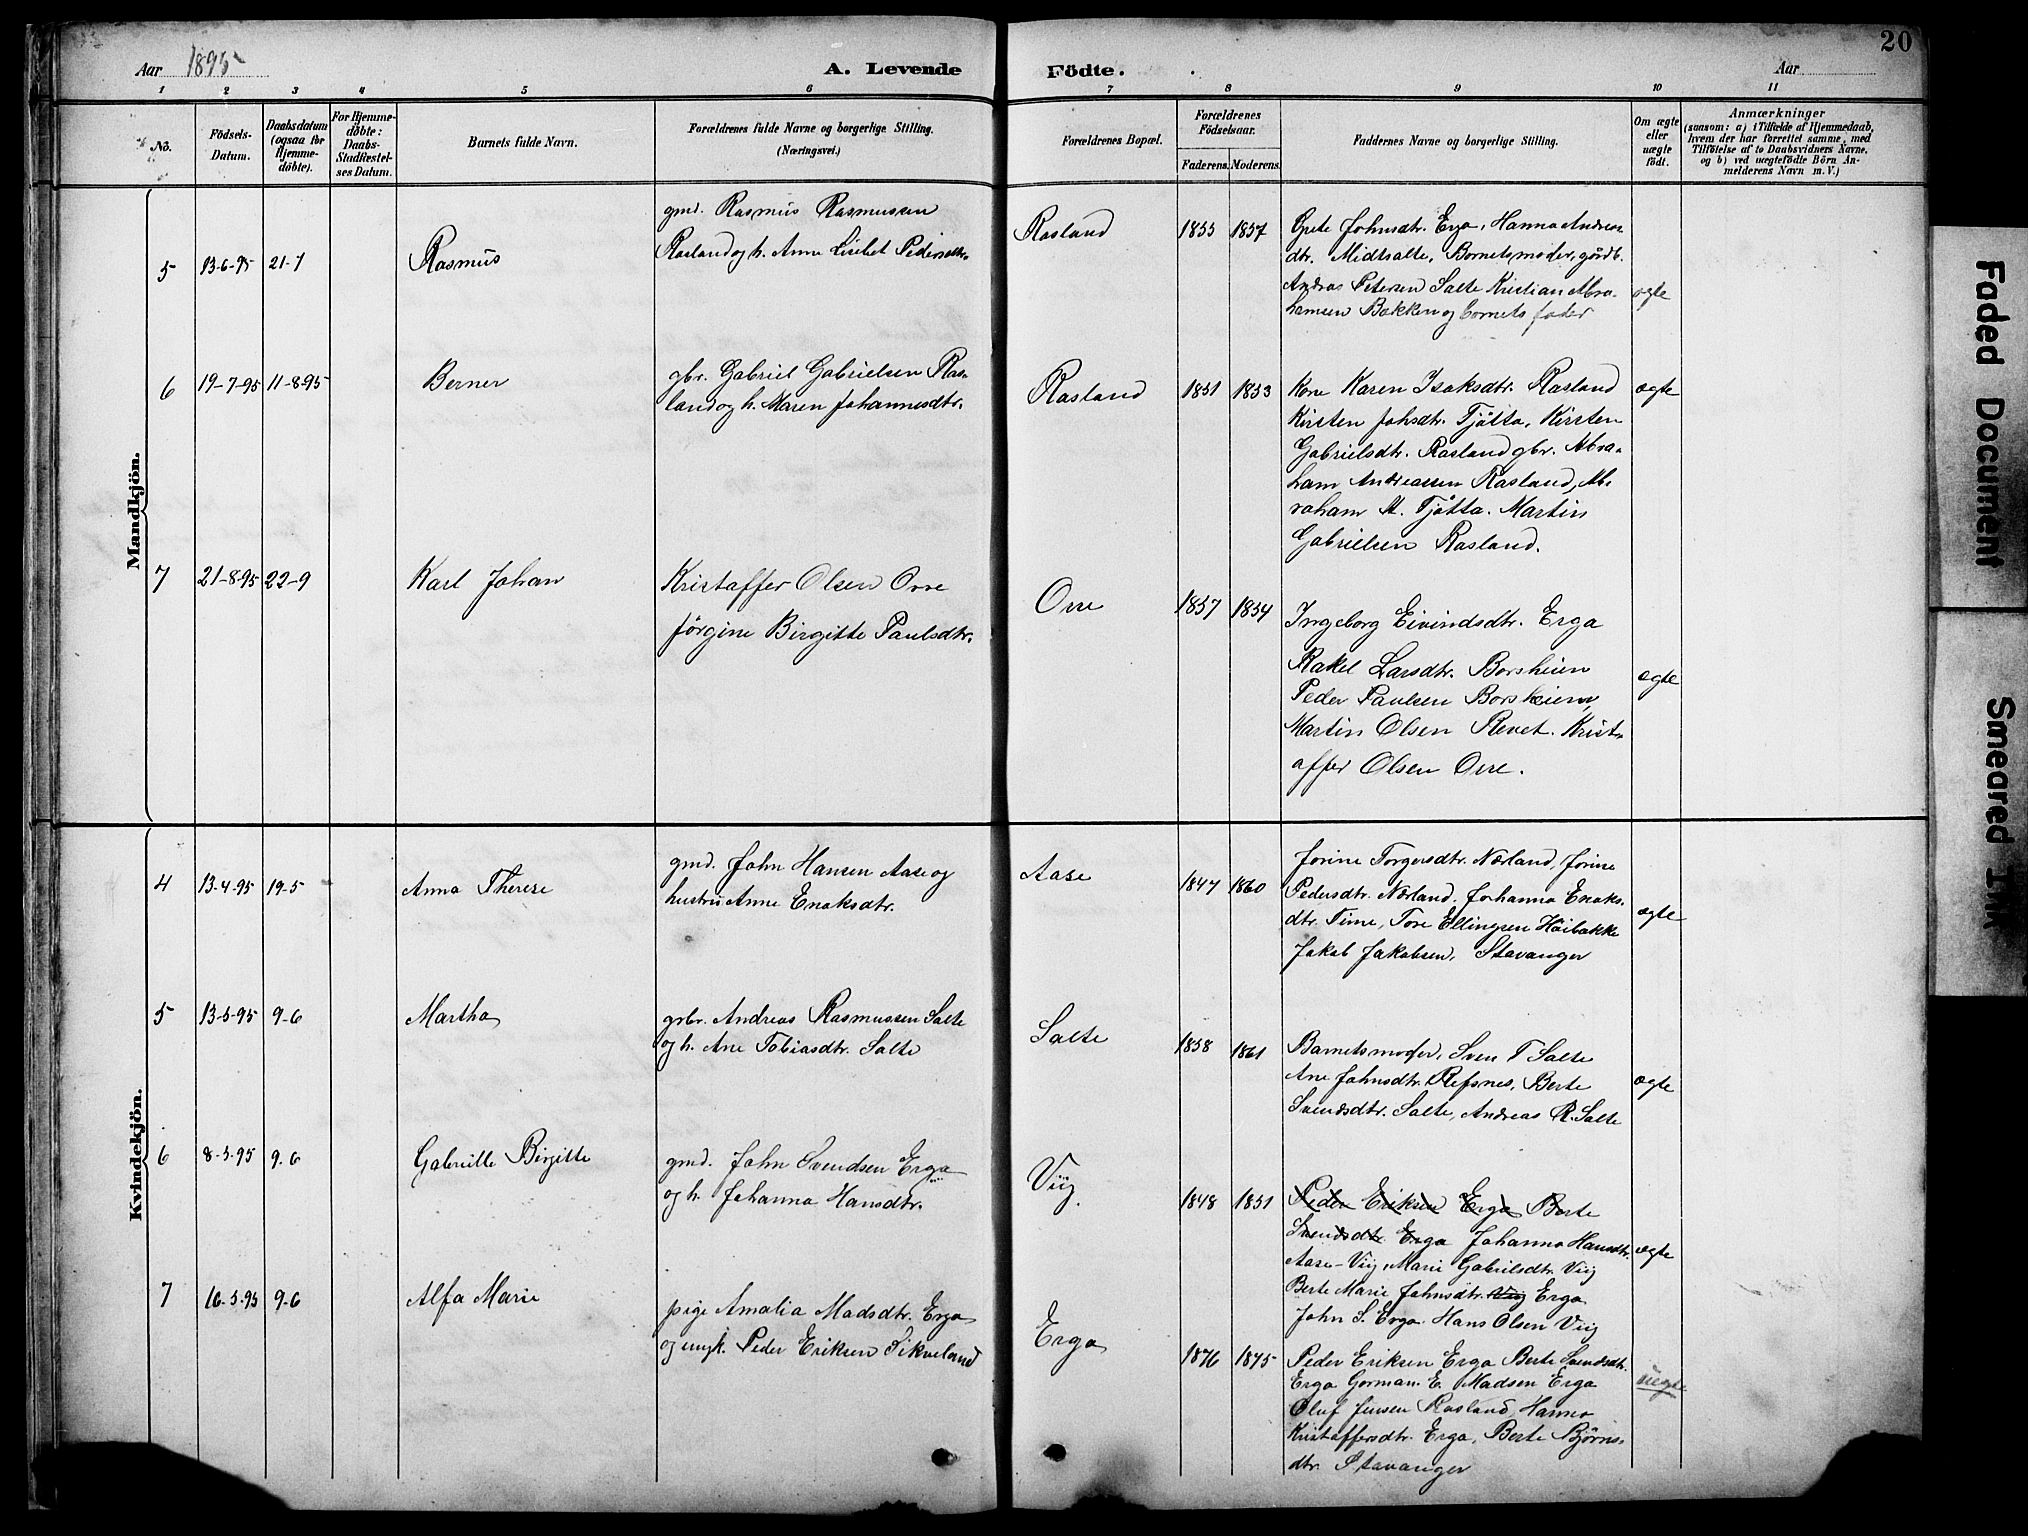 20
Aar 1895
A. Levende Födte.
Aar
1 2 3 4 5 6 7 8 9 10 11
No.
Födsels-Datum.
Daabsdatum (ogsaa for Hjemme-döbte).
For Hjemme-döbte: Daabs-Stadfæstel-ses Datum.
Barnets fulde Navn.
Forældrenes fulde Navne og borgerlige Stilling.
(Næringsvei.)
Forældrenes Bopæl.
Forældrenes Födselsaar.
Faderens. Moderens.
Faddernes Navne og borgerlige Stilling.
Om ægte eller uægte födt.
Anmærkninger
(saasom: a) i Tilfælde af Hjemmedaab,
hvem der har forrettet samme, med
Tilföielse af to Daabsvidners Navne,
og b) ved uægtefödte Börn An-
melderens Navn m. V.)
Mandkjön.
5 13-6-95 21-7 Rasmus
gmd. Rasmus Rasmussen
Rasland og h. Anne Lisebet Pedersdtr.
Rasland 1855 1857
Grete Johnsdtr. Erga, Hanna Andreas-
dtr. Midtsalte, Bornetsmoder, gårdb.
Andras Petersen Salte Kristian Abra-
hamsen Bakken og bornets fader
ægte
6 19-7-95 11-8-95 Berner
gbr. Gabriel Gabrielsen Ras-
land og h. Maren Johannesdtr.
Rasland 1851 1853
Kone Karen Isaksdtr. Rasland
Kirsten Johsdtr. Tjåtta, Kirsten
Gabrielsdtr. Rasland gbr. Abra-
ham Andreassen Rasland, Ab-
raham A. Tjåtta. Martin
Gabrielsen Rasland.
ægte
7 21-8-95 22-9 Karl Johan
Kristaffer Olsen Orre
Jörgine Birgitte Paulsdtr.
Orre 1857 1854
Ingeborg Eivindsdtr. Erga
Rakel Larsdtr. Borsheim
Peder Paulsen Borsheim,
Martin Olsen Revet. Krist-
affer Olsen Orre.
ægte
Kvindekjön.
4 13-4-95 19-5 Anna Therese
gmd. John Hansen Aase og
hustru Anne Enoksdtr.
Aase 1847 1860
Jorine Torgersdtr. Nærland, Jorine
Pedersdtr. Nærland. Johanna Enoks-
dtr. Time, Tore Ellingsen Höibakke
Jakob Jakobsen, Stavanger
ægte
5 13-5-95 9-6 Martha
grbr. Andreas Rasmussen Salte
og h. Ane Tobiasdtr. Salte
Salte 1858 1861
Barnetsmoder, Sven T Salte
Ane Johnsdtr. Refsnes, Berte
Svendsdtr. Salte, Andreas R. Salte
ægte
6 8-5-95 9-6 Gabrielle Birgitte
gmd. John Svendsen Erga
og h. Johanna Hansdtr.
Viig. 1848 1851
Peder Eriksen Erga Berte
Svendsdtr Erga Johanna Hansdtr.
Aase-Viig, Marie Gabrilsdtr. Viig
Berte Marie Johnsdtr. Viig Erga
John S. Erga. Hans Olsen Viig
ægte
7 16-5-95 9-6 Alfa Marie
pige Amalia Madsdtr. Erga
og ungk. Peder Eriksen Sikveland
Erga 1876 1875
Peder Eriksen Erga Berte Svendsdtr.
Erga Gorman. E. Madsen Erga
Oluf Jensen Rasland, Hanna
Kristaffersdtr. Erga, Berte Bjørns-
dtr. Stavanger
uægte
Faded Document
Smeared Ink